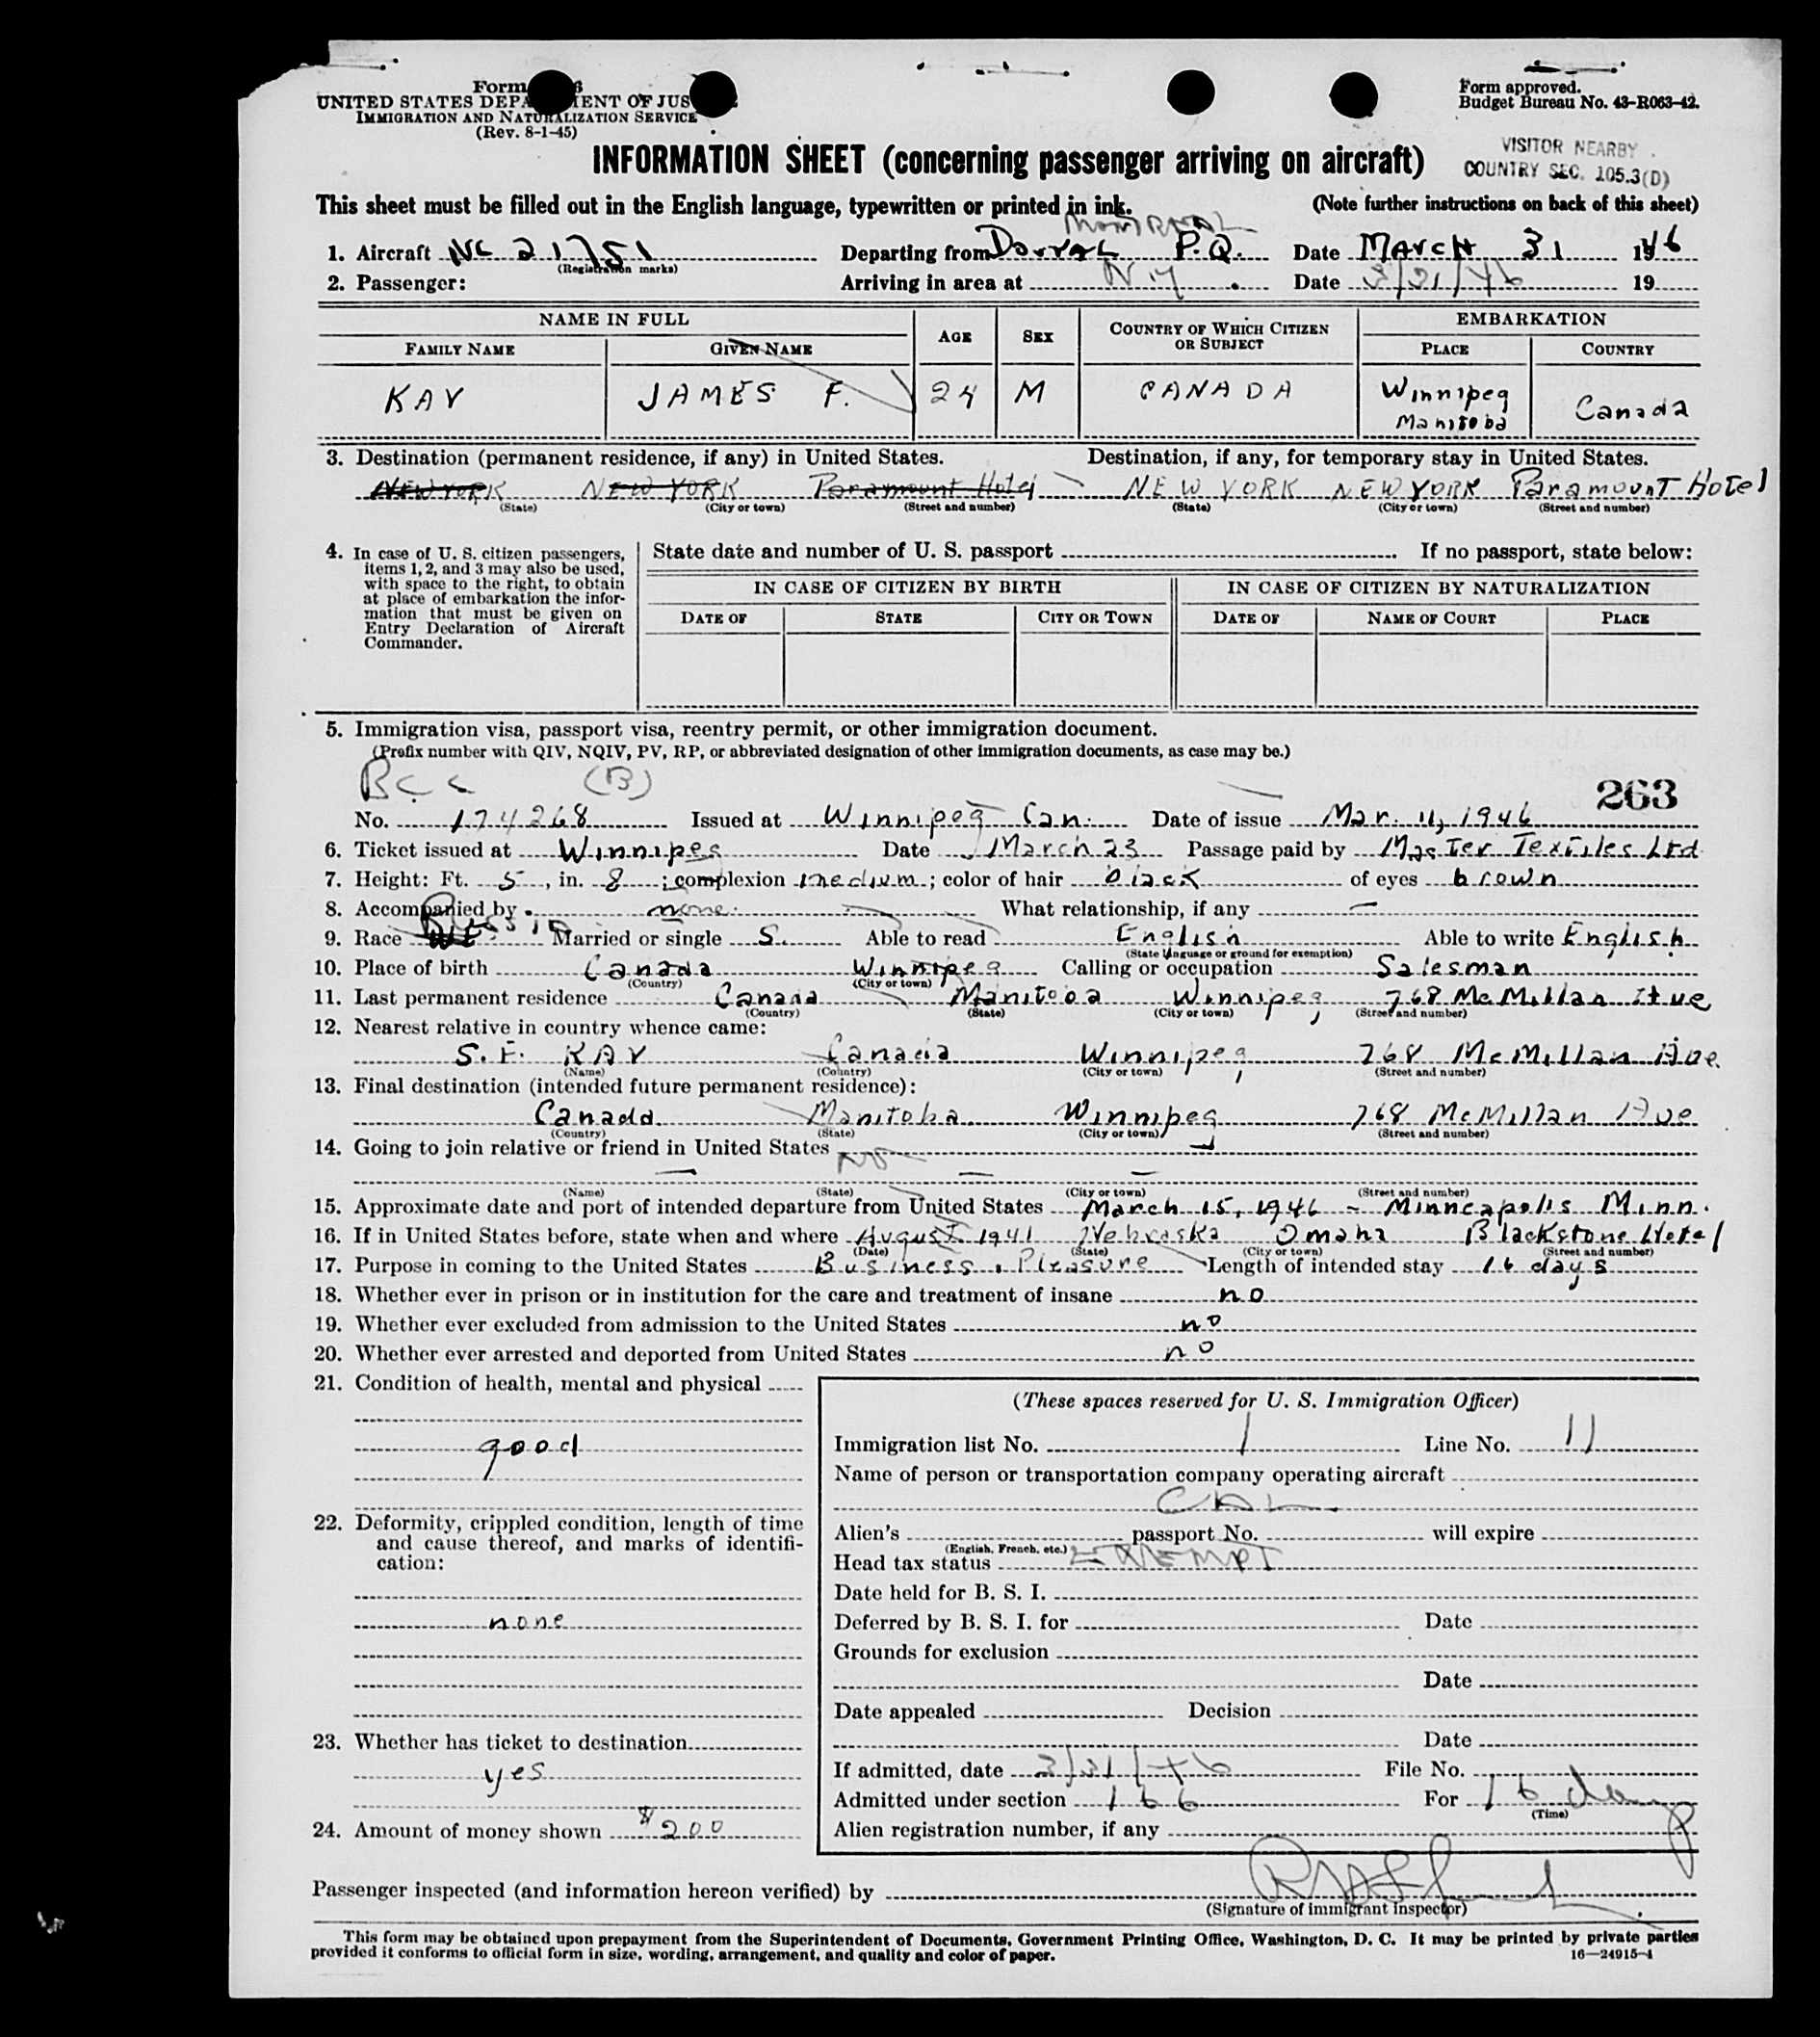 Form
UNITED STATES DEPARTMENT OF JUSTICE
IMMIGRATION AND NATURALIZATION SERVICE
(Rev. 8-1-45)
Form approved.
Budget Bureau No. 43-R063-42.
INFORMATION SHEET (concerning passenger arriving on aircraft)
VISITOR NEARBY
COUNTRY SEC. 105.3(D)
This sheet must be filled out in the English language, typewritten or printed in ink. (Note further instructions on back of this sheet)
MONTREAL
1. Aircraft NC 21751 Departing from Dorval P.Q. Date MARCH 31 1946
(Registration marks)
2. Passenger: Arriving in area at N Y Date 3/31/46 19
NAME IN FULL AGE SEX COUNTRY OF WHICH CITIZEN OR SUBJECT EMBARKATION
FAMILY NAME GIVEN NAME PLACE COUNTRY
KAY JAMES F. 24 M CANADA Winnipeg Manitoba Canada
3. Destination (permanent residence, if any) in United States. Destination, if any, for temporary stay in United States.
NEW YORK NEW YORK Paramount Hotel NEW YORK NEW YORK Paramount Hotel
(State) (City or town) (Street and number) (State) (City or town) (Street and number)
4. In case of U. S. citizen passengers, items 1, 2, and 3 may also be used, with space to the right, to obtain at place of embarkation the information that must be given on Entry Declaration of Aircraft Commander.
State date and number of U. S. passport If no passport, state below:
IN CASE OF CITIZEN BY BIRTH IN CASE OF CITIZEN BY NATURALIZATION
DATE OF STATE CITY OR TOWN DATE OF NAME OF COURT PLACE
5. Immigration visa, passport visa, reentry permit, or other immigration document.
(Prefix number with QIV, NQIV, PV, RP, or abbreviated designation of other immigration documents, as case may be.)
BCC (B)
263
No. 174268 Issued at Winnipeg Can. Date of issue Mar. 11, 1946
6. Ticket issued at Winnipeg Date March 23 Passage paid by Master Textiles Ltd
7. Height: Ft. 5, in. 8; complexion medium; color of hair black of eyes brown
8. Accompanied by none. What relationship, if any —
9. Race Russia Married or single S. Able to read English Able to write English
(State language or ground for exemption)
10. Place of birth Canada Winnipeg Calling or occupation Salesman
(Country) (City or town)
11. Last permanent residence Canada Manitoba Winnipeg 768 McMillan Ave
(Country) (State) (City or town) (Street and number)
12. Nearest relative in country whence came:
S. F. KAY Canada Winnipeg 768 McMillan Ave.
(Name) (Country) (City or town) (Street and number)
13. Final destination (intended future permanent residence):
Canada Manitoba Winnipeg 768 McMillan Ave
(Country) (State) (City or town) (Street and number)
14. Going to join relative or friend in United States NO
— — —
(Name) (State) (City or town) (Street and number)
15. Approximate date and port of intended departure from United States March 15, 1946 - Minneapolis Minn.
16. If in United States before, state when and where August 1941 Nebraska Omaha Blackstone Hotel
(Date) (State) (City or town) (Street and number)
17. Purpose in coming to the United States Business, Pleasure Length of intended stay 16 days
18. Whether ever in prison or in institution for the care and treatment of insane no
19. Whether ever excluded from admission to the United States no
20. Whether ever arrested and deported from United States no
21. Condition of health, mental and physical
good
22. Deformity, crippled condition, length of time and cause thereof, and marks of identification:
none
23. Whether has ticket to destination
yes
24. Amount of money shown $200
(These spaces reserved for U. S. Immigration Officer)
Immigration list No. 1 Line No. 11
Name of person or transportation company operating aircraft
Alien's passport No. will expire
(English, French, etc.)
Head tax status EXEMPT
Date held for B. S. I.
Deferred by B. S. I. for Date
Grounds for exclusion
Date
Date appealed Decision
Date
If admitted, date 3/31/46 File No.
Admitted under section 166 For 16 days
(Time)
Alien registration number, if any
Passenger inspected (and information hereon verified) by
(Signature of immigrant inspector)
This form may be obtained upon prepayment from the Superintendent of Documents, Government Printing Office, Washington, D. C. It may be printed by private parties
provided it conforms to official form in size, wording, arrangement, and quality and color of paper. 16—24915-1